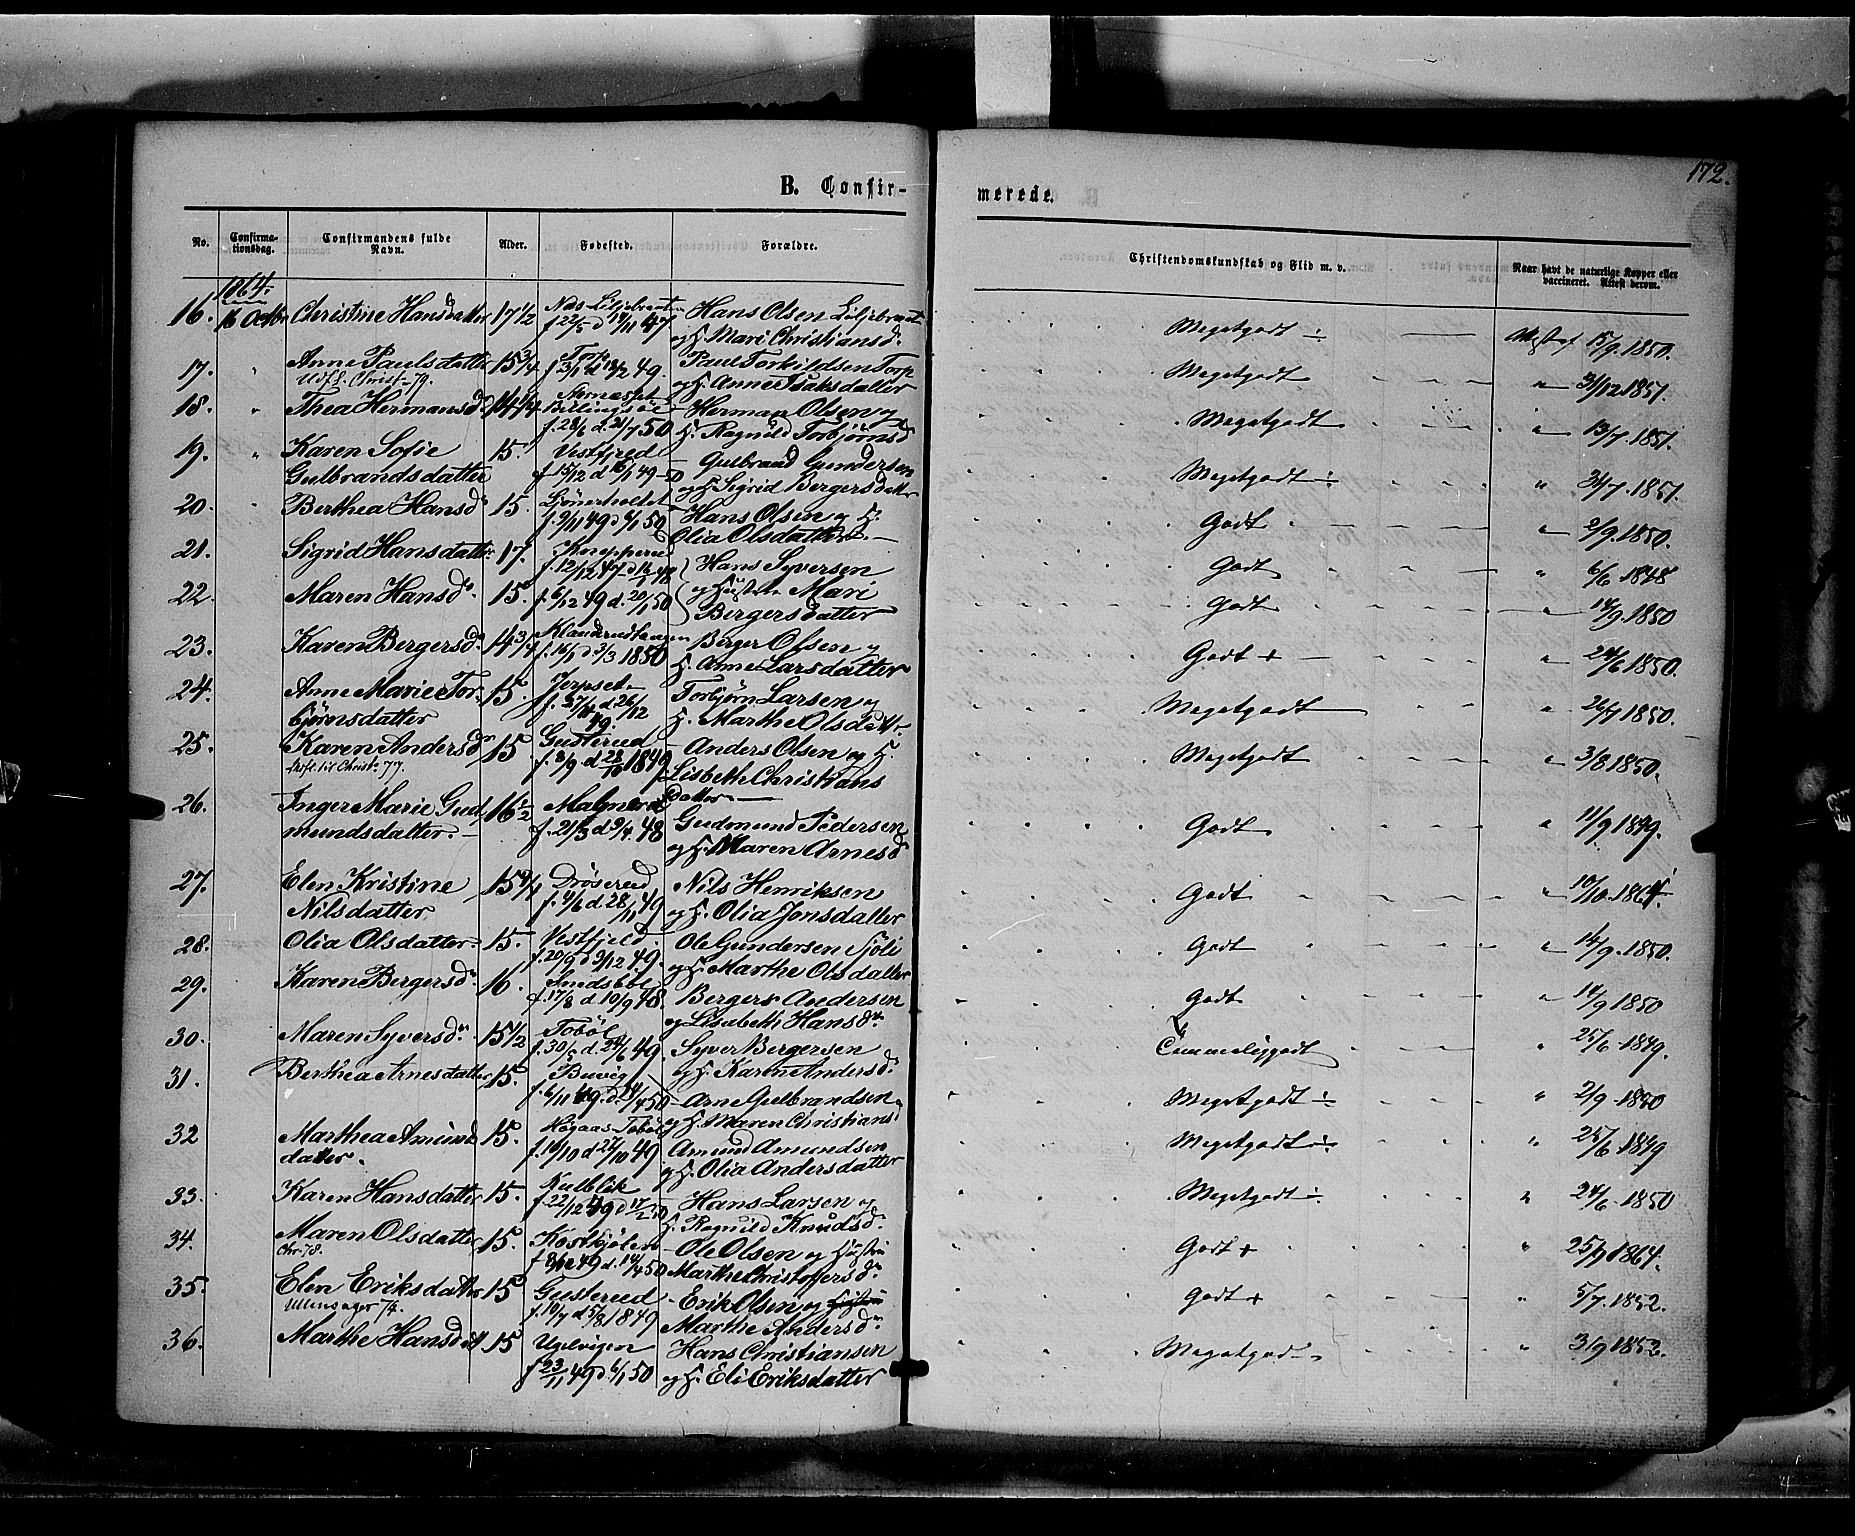 172.
B. Confir-
merede.
No. Confirma-tionsdag. Confirmandens fulde Navn. Alder. Fødested. Forældre. Christendomskundskab og Flid m. v. Naar havt de naturlige Kopper eller vaccineret. Attest derom.
1864.
16. 16 Octbr Christine Hansdatter 17 1/2 Næs Liljebraaten Hans Olsen Liljebraaten Megetgodt ÷ Attest af 15/9. 1850.
f 22/5 d 14/11 47 og H. Mari Christiansd.
17. " Anne Paulsdatter 15 3/4 Torp Paul Torkildsen Torp Megetgodt " 31/12 1851.
Udfl. Christ. 79. f 3/1 d 18/2 49. og H. Anne Isaksdatter
18. " Thea Hermansd 14 1/4 Billingsöe Herman Olsen og Megetgodt " 13/7. 1851.
f. 28/6 d. 21/7 50 H. Ragnild Torbjörnsd
19. " Karen Sofie 15. Vestfjeld Gulbrand Gundersen Megetgodt ÷ " 31/7. 1851.
Gulbrandsdatter f 15/12 d 16/1 49-50 og H. Sigrid Bergersdatter
20. " Berthea Hansd 15. Hans Olsen og H. Godt " 2/9. 1850.
f. 9/11 49 d 6/1 50 Olia Olsdatter
21. Sigrid Hansdatter 17. Knapperud Hans Syversen Godt " 6/6 1848
f. 12/12 47 d 16/1 48 og Hustru Mari
22. Maren Hansd. 15. f. 6/12 49 d. 20/1 50 Bergersdatter Godt " 14/9. 1850
23. Karen Bergersd 14 3/4 Klanderudtangen Berger Olsen og Godt + " 24/6 1850.
f. 16/1 d 3/3 1850 H. Anne Larsdatter
24. Anne Marie Tor- 15. Jerpset Torbjørn Larsen og Megetgodt " 26/7 1850.
björnsdatter d. 26/12 49. H. Marthe Olsdatter
25. Karen Andersd 15 Gusterud Anders Olsen og H. Megetgodt " 3/8 1850.
Udfl. til Christ. 77. f. 8/9 d. 28/10 1849 Lisbeth Christians
datter
26. Inger Marie Gud 16 1/2 Malnerud Gudmund Pedersen Godt " 11/9 1849.
mundsdatter. f. 21/3 d 9/4. 48 og H. Maren Arnesd
27. Elen Kristine 15 Dröserud Nils Henriksen Godt " 10/10. 1864.
Nilsdatter f. 4/6 d. 28/11 49 og H. Olia Jonsdatter
28. Olia Olsdatter 15. Vestfjeld. Ole Gundersen Sjöli Godt " 14/9. 1850.
f. 20/9 d 9/12 49. og H. Marthe Olsdatter
29. Karen Bergersd. 16. Smedsböl Bergers Andersen Godt " 14/9 1850
f. 17/8 d 10/9 48. og Lisabeth Hansd.
30. Maren Syversd. 15 1/2 Toböl Syver Bergersen Temmeliggodt " 25/6. 1849.
f. 30/5 d. 24/6 49. og H. Karen Andersd.
31. Berthea Arnesdatter 15. Buvig Arne Gulbrandsen Megetgodt ÷ " 2/9. 1850
f. 6/11 49. d. 14/4 50 og H. Maren Christiansd
32 Marthea Amund 15. Högaas-Toböl Amund Amundsen Megetgodt ÷ " 25/6 1849
datter. f. 10/10 d 27/10 49 og H. Olia Andersdatter
33. Karen Hansdatter 15. Kulblik Hans Larsen og Megetgodt ÷ " 24/6. 1850
f. 22/12 49 d 17/2 50 H. Ragnild Knudsd.
34. Maren Olsdatter 15. Kostkjölen Ole Olsen og Hustru Godt + " 25/9 1864.
Chr. 78. f 8/12 49 d. 14/4 50 Marthe Christoffersd.
35. Elen Eriksdatter 15 Gusterud Erik Olsen og Hustru Godt + " 5/7. 1852.
Ullensager 74. f. 10/7 d 5/8 1849 Marthe Andersd.
36. Marthe Hansdatt 15 Ugelvigen Hans Christiansen Megetgod " 3/9 1853.
f 23/11 49 d 6/1 50 og H. Eli Eriksdatter